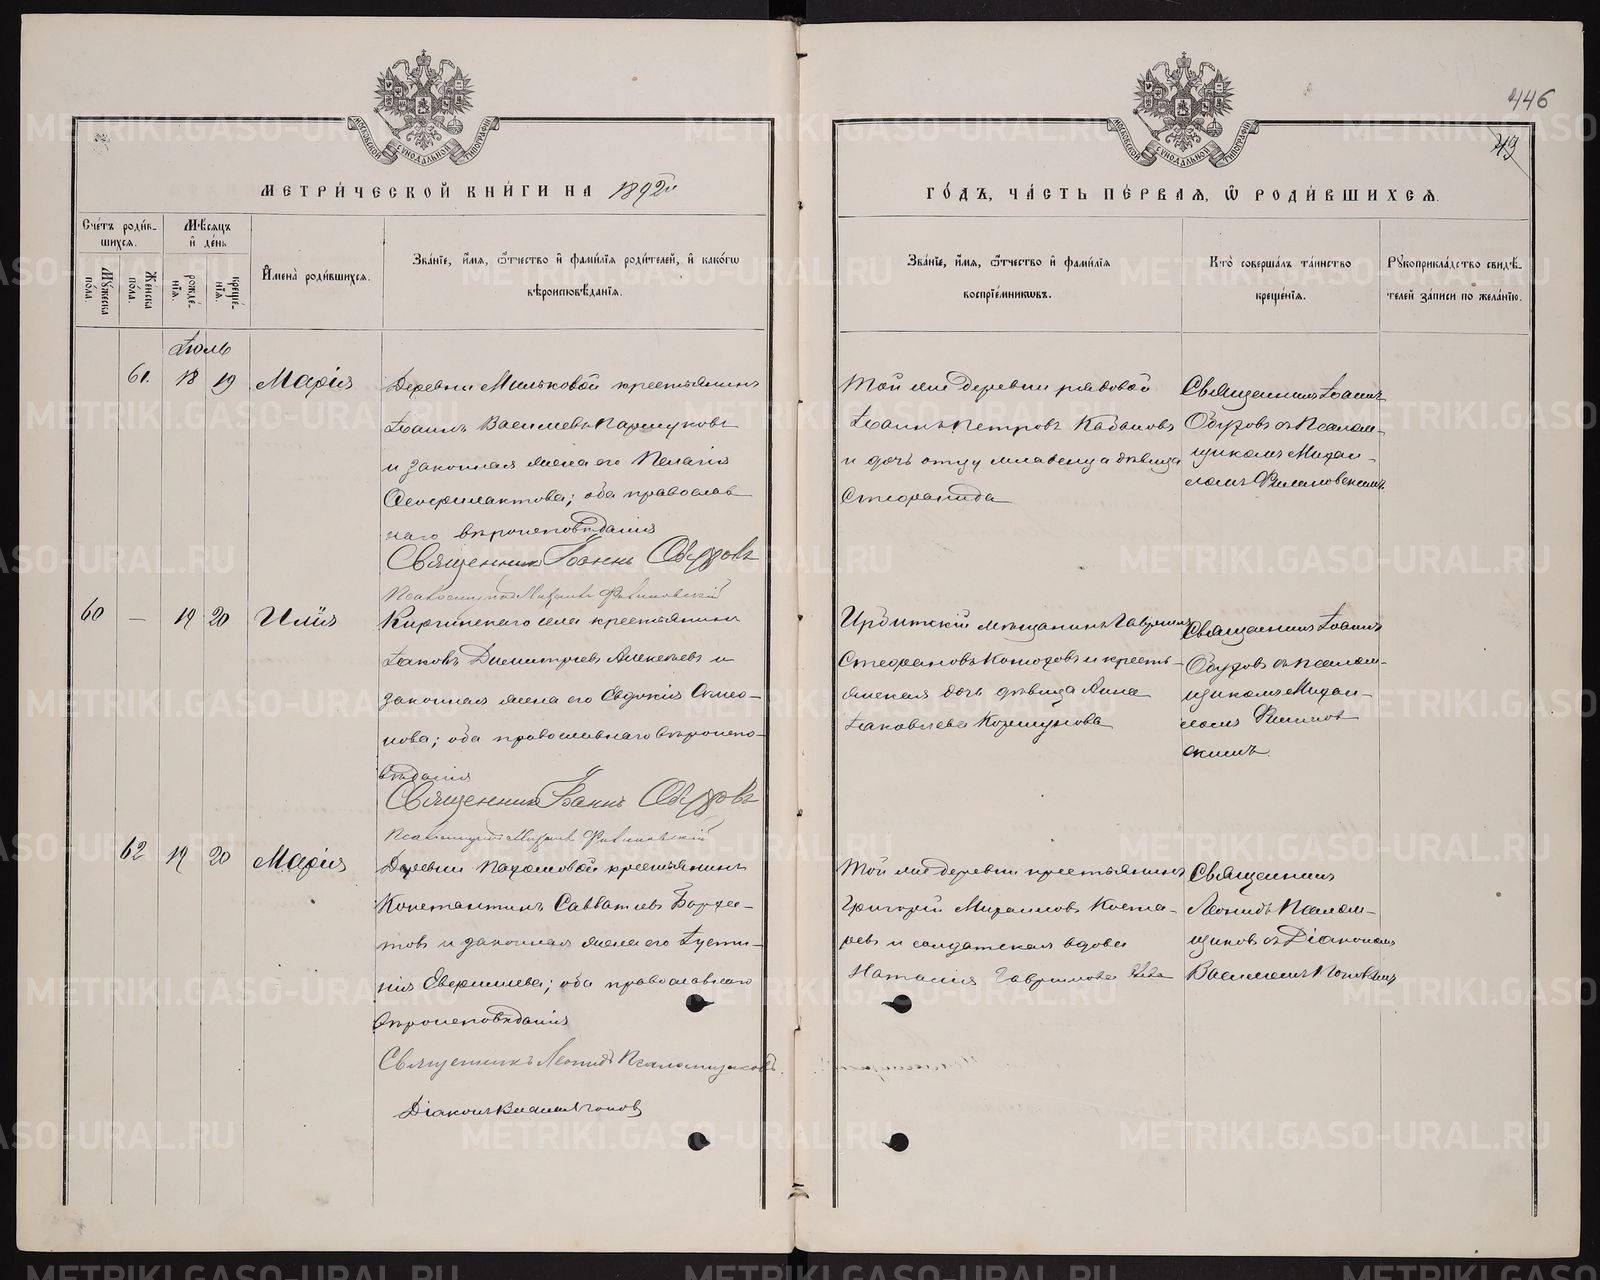 446
43
МЕТРИ́ЧЕСКОЙ КНИ́ГИ НА 1892й
ГО́ДЪ, ЧА́СТЬ ПЕ́РВАЯ, Ѿ РОДИ́ВШИХСѦ.
Сче́тъ роди́вшихсѧ.
Мѣ́сѧцъ и҆ де́нь
Мꙋ́жеска по́ла.
Же́нска по́ла.
рожде́нїѧ.
креще́нїѧ.
И҆мена̀ роди́вшихсѧ.
Зва́нїе, и҆́мѧ, ѻ҆́тчество и҆ фами́лїѧ роди́телей, и҆ како́гѡ
вѣроисповѣ́данїѧ.
Зва́нїе, и҆́мѧ, ѻ҆́тчество и҆ фами́лїѧ
воспрїе́мникѡвъ.
Кто̀ соверша́лъ та́инство
креще́нїѧ.
Рꙋкоприкла́дство свидѣ́-
телей за́писи по жела́нїю.
Іюль
61. 18 19 Марія
Деревни Мильковой крестьянинъ
Іоаннъ Васильевъ Паршуковъ
и законная жена его Пелагія
Ѳеофилактова; оба православ
наго вѣроисповѣданія
Священникъ Іоаннъ Обуховъ
Псаломщикъ Михаилъ
Той же деревни рядовой
Іоаннъ Петровъ Кабаковъ
и дочь отцу младенца дѣвица
Стефанида
Священникъ Іоаннъ
Обуховъ съ Псалом-
щикомъ Михаи-
ломъ
60 — 19 20 Илія
Киргинскаго села крестьянинъ
Іаковъ Димитріевъ Алексѣевъ и
законная жена его Евдокія Симео-
нова; оба православнаго вѣроиспо-
вѣданія
Священникъ Іоаннъ Обуховъ
Псаломщикъ Михаилъ
Ирбитскій мѣщанинъ Гавріилъ
Стефановъ и кресть-
янская дочь дѣвица Анна
Іаковлева
Священникъ Іоаннъ
Обуховъ съ Псалом-
щикомъ Михаи-
ломъ
скимъ.
62 19 20 Марія
Деревни крестьянинъ
Константинъ Савватіевъ
и законная жена его Іусти-
нія; оба православнаго
вѣроисповѣданія
Священникъ Леонидъ Псаломщиковъ.
Діаконъ Василій Поповъ
Той же деревни крестьянинъ
Григорій Михаиловъ Коста-
ревъ и солдатская вдова
Наталія Гавриилова
Священникъ
Леонидъ Псалом-
щиковъ съ Діакономъ
Василіемъ Поповымъ
METRIKI.GASO-URAL.RU